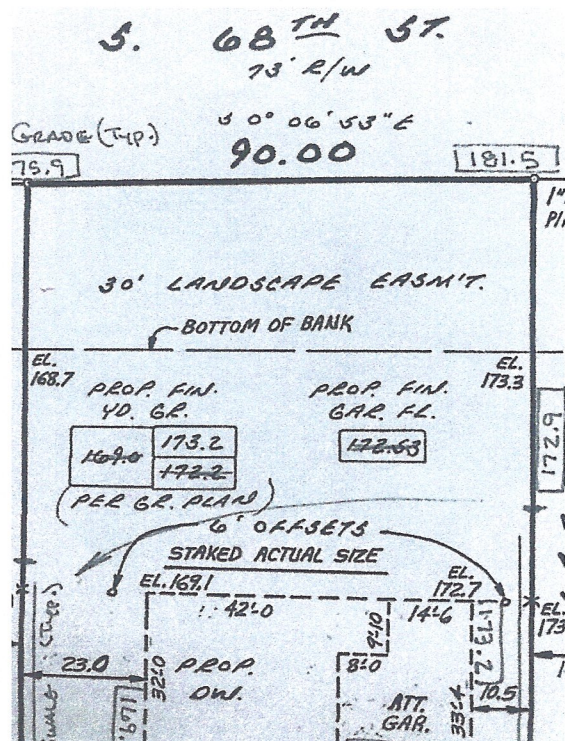 S. 68TH ST.
73' R/W
S 0° 06' 53" E
GRADE (TYP.)
90.00
75.9
181.5
1"
30' LANDSCAPE EASM'T.
BOTTOM OF BANK
EL.
168.7
EL.
173.3
PROP. FIN.
YD. GR.
PROP. FIN.
GAR. FL.
173.2
172.2
172.63
172.9
(PER GR. PLAN)
6' OFFSETS
STAKED ACTUAL SIZE
EL. 169.1
EL.
172.7
42'-0
14'-6
EL.
173
9'-10
173.2
(TYP.)
23.0
32'-0
PROP.
DW.
8'-0
ATT.
GAR.
33'-4
10.5
SWALE
169.